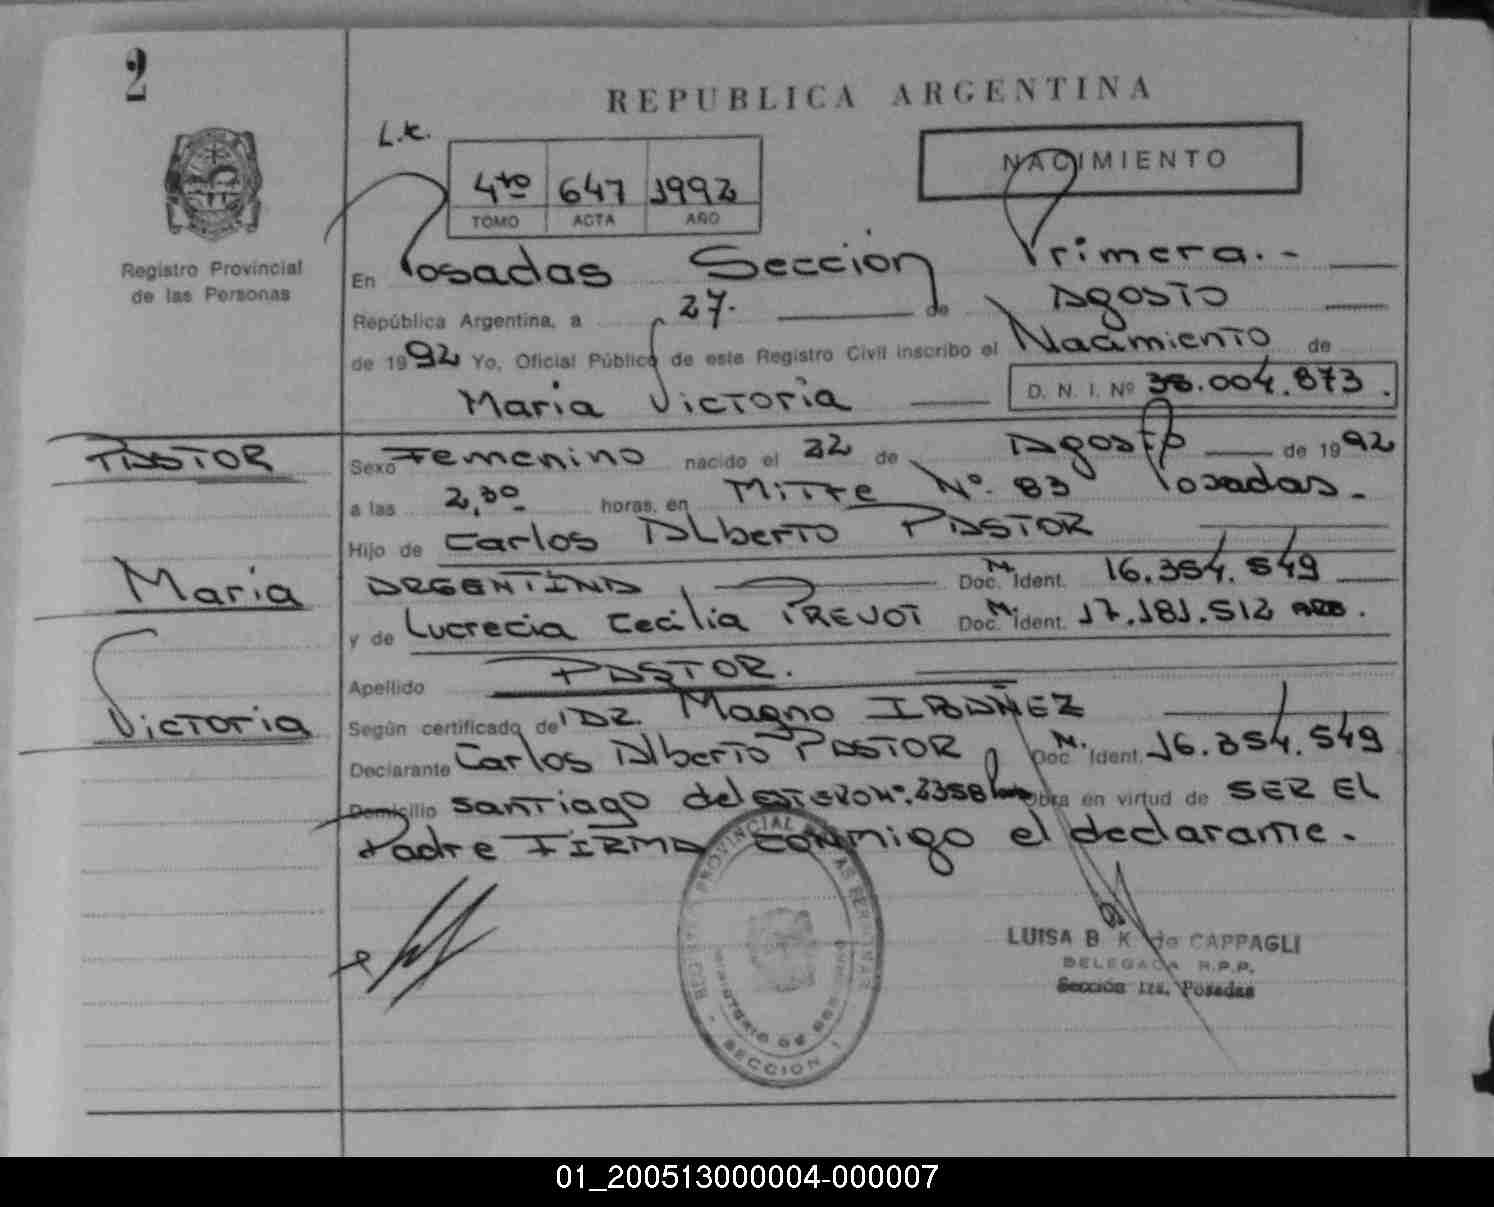 2
REPUBLICA ARGENTINA
L.K.
4to 647 1992
TOMO ACTA AÑO
NACIMIENTO
Registro Provincial
de las Personas
En Posadas Sección Primera.-
República Argentina, a 27. de Agosto
de 1992 Yo, Oficial Público de este Registro Civil inscribo el Nacimiento de
Maria Victoria D. N. I. Nº 38.004.873.
PASTOR
Maria
Victoria
Sexo Femenino nacido el 22 de Agosto de 1992
a las 2,30 horas, en Mitre Nº. 83 Posadas.
Hijo de Carlos Alberto PASTOR
ARGENTINA Doc. N. Ident. 16.354.549
y de Lucrecia Cecilia PREVOT Doc. N. Ident. 17.181.512 ARG.
Apellido PASTOR.
Según certificado de DZ. Magno IBAÑEZ
Declarante Carlos Alberto PASTOR Doc. N. Ident. 16.354.549
Domicilio Santiago del ESTERO Nº. 2358 Obra en virtud de SER EL
Padre FIRMA conmigo el declarante.
REGISTRO PROVINCIAL DE LAS PERSONAS
MINISTERIO DE GOBIERNO
SECCION 1
LUISA B K de CAPPAGLI
DELEGADA R.P.P.
Sección 1ra. Posadas
01_200513000004-000007